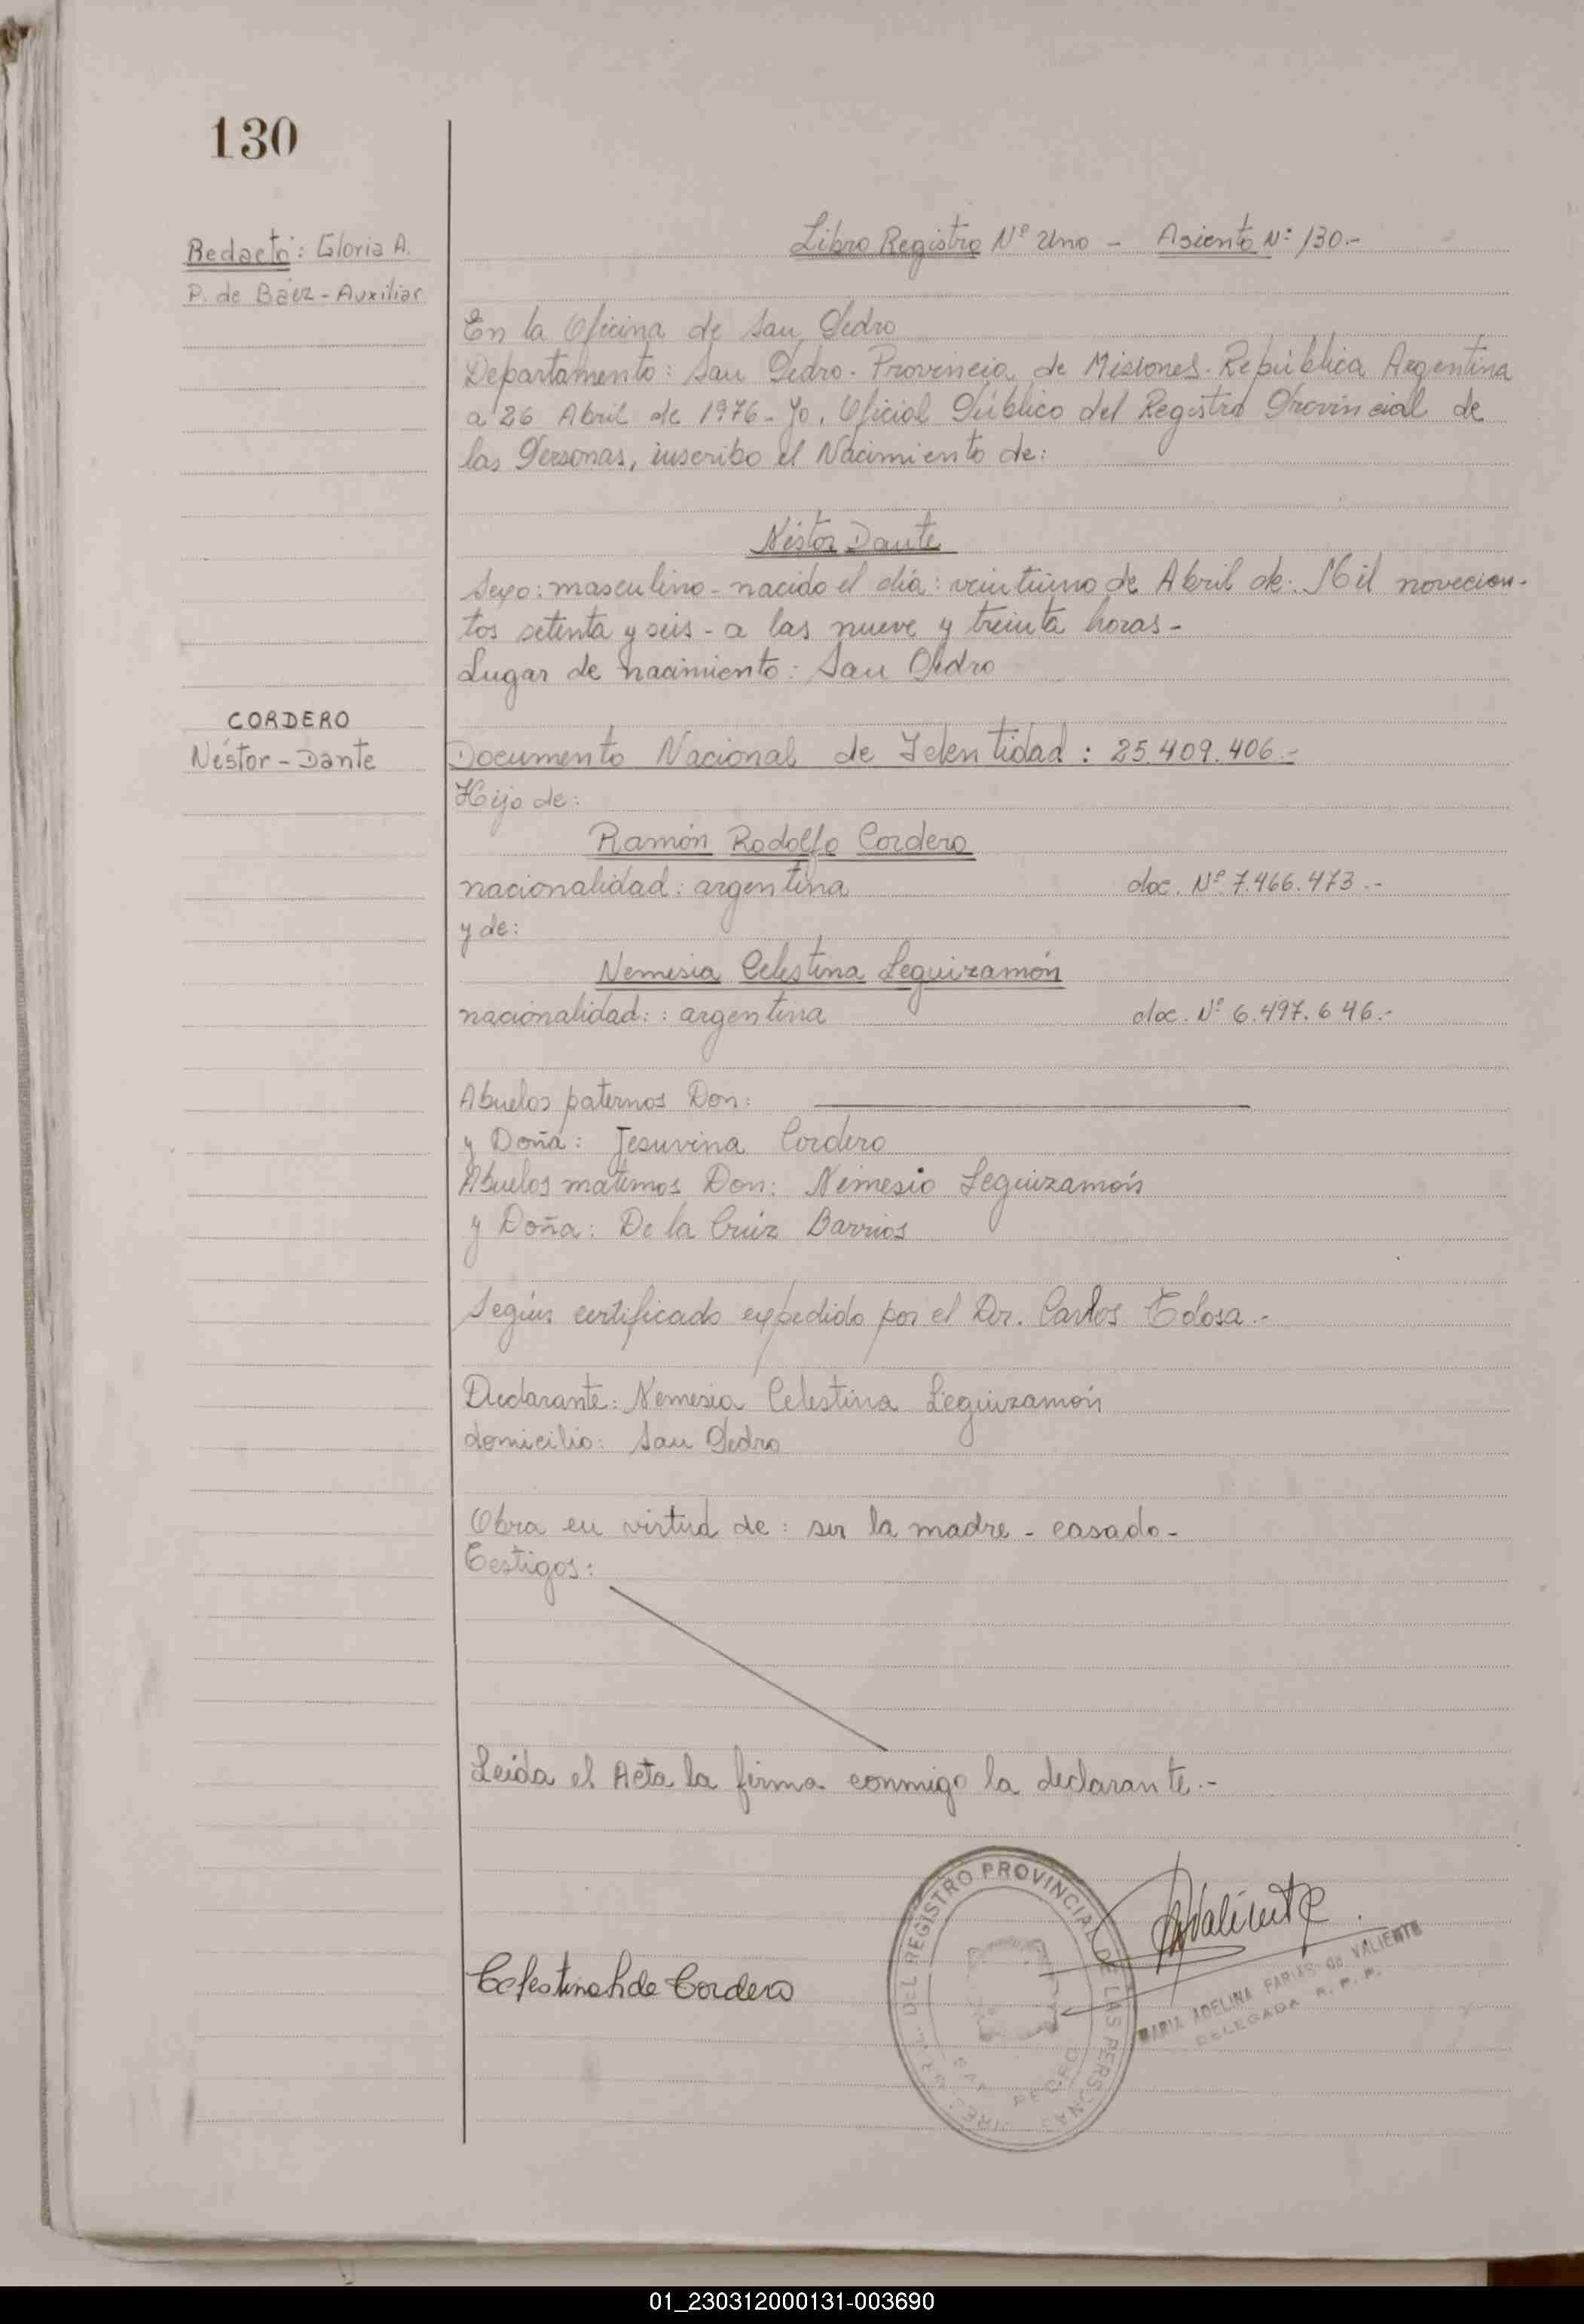 130
Redactó: Gloria A.
P. de Báez - Auxiliar
Libro Registro Nº Uno - Asiento Nº 130.-
En la Oficina de San Pedro
Departamento: San Pedro. Provincia de Misiones. República Argentina
a 26 Abril de 1976. Yo, Oficial Público del Registro Provincial de
las Personas, inscribo el Nacimiento de:
Néstor Dante
Sexo: masculino - nacido el día: veintiuno de Abril de: Mil novecien-
tos setenta y seis - a las nueve y treinta horas -
Lugar de nacimiento: San Pedro
CORDERO
Néstor - Dante
Documento Nacional de Identidad: 25.409.406.-
Hijo de:
Ramón Rodolfo Cordero
nacionalidad: argentina doc. Nº 7.466.473.-
y de:
Nemesia Celestina Leguizamón
nacionalidad: : argentina doc. Nº 6.497.646.-
Abuelos paternos Don:
y Doña: Jesuvina Cordero
Abuelos maternos Don: Nemesio Leguizamón
y Doña: De la Cruz Barrios
Según certificado expedido por el Dr. Carlos Tolosa.-
Declarante: Nemesia Celestina Leguizamón
domicilio: San Pedro
Obra en virtud de: ser la madre - casado -
Testigos:
Leída el Acta la firma conmigo la declarante.-
DEL REGISTRO PROVINCIAL DE LAS PERSONAS
SAN PEDRO
Valiente
MARIA ADELINA FARIAS de VALIENTE
DELEGADA R. P. P.
Celestina L de Cordero
01_230312000131-003690